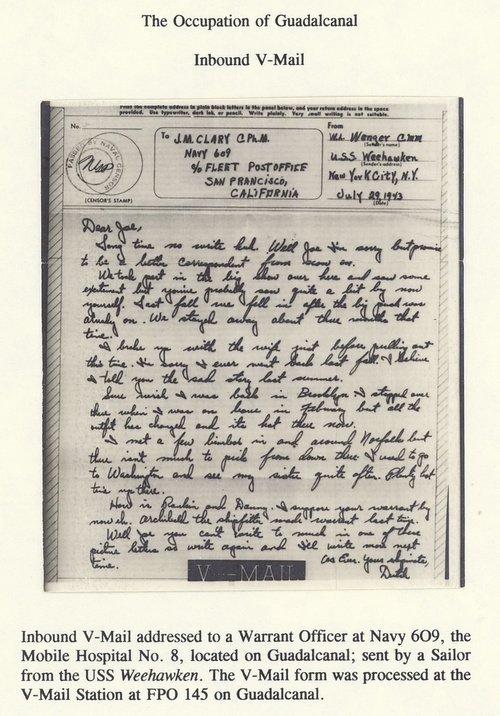 The Occupation of Guadalcanal
Inbound V-Mail
Print the complete address in plain block letters in the panel below, and your return address in the space
provided. Use typewriter, dark ink, or pencil. Write plainly. Very small writing is not suitable.
No.
PASSED BY NAVAL CENSOR
(CENSOR'S STAMP)
To J.M. CLARY C.Ph.M.
NAVY 609
c/o FLEET POST OFFICE
SAN FRANCISCO,
CALIFORNIA
From
Wenger CMM
(Sender's name)
U.S.S. Weehawken
(Sender's address)
New York City, N.Y.
July 29 1943
(Date)
Dear Joe,
Long time no write huh. Well Joe I'm sorry but promise
to be a better correspondent from now on.
We took part in the big show over here and saw some
excitement but you've probably saw quite a bit by now
yourself. Last fall we fell in after the big push was
already on. We stayed away about three months that
time.
I broke up with the wife just before pulling out
this time. I'm sorry I ever went back last fall. I believe
I told you the sad story last summer.
I was back in Brooklyn I stopped over
there when I was on leave in February but all the
outfit has changed and its hot there now.
I met a few in and around Norfolk but
there isn't much to pick from down there I used to go
to Washington and see my sister quite often. Plenty hot
time up there.
How is Rankin and Danny. I suppose your warrant by
now eh. Archibell the shipfitter made warrant last trip.
Well Joe you can't write to much in one of these
picture letters so write again and I'll write more next
time.
As Ever. Your shipmate,
Dutch
V···-MAIL
Inbound V-Mail addressed to a Warrant Officer at Navy 6O9, the
Mobile Hospital No. 8, located on Guadalcanal; sent by a Sailor
from the USS Weehawken. The V-Mail form was processed at the
V-Mail Station at FPO 145 on Guadalcanal.